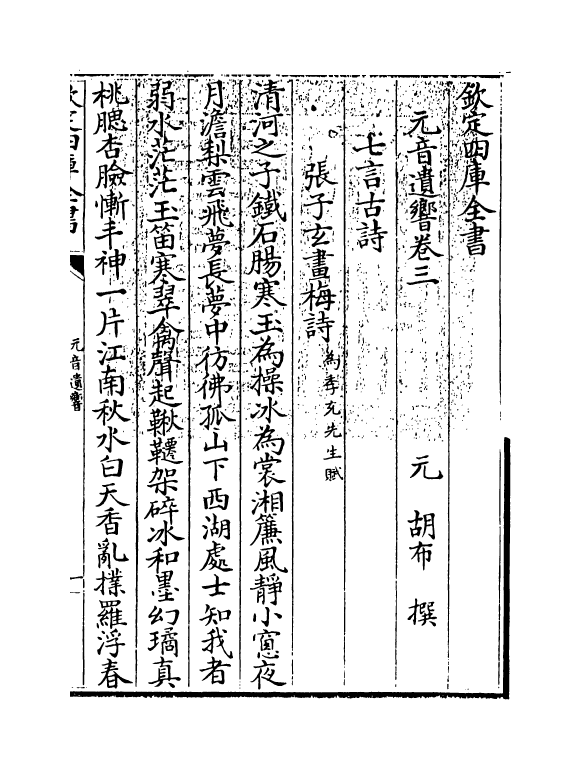 欽定四庫全書
元音遺響卷三
元 胡布 撰
七言古詩
張子玄畫梅詩 為季充先生賦
清河之子鐵石腸寒玉為操冰為裳湘簾風靜小窻夜
月澹梨雲飛夢長夢中彷彿孤山下西湖處士知我者
弱水茫茫玉笛寒翠禽聲起鞦韆架碎冰和墨幻璚真
桃腮杏臉慚丰神一片江南秋水白天香亂撲羅浮春
欽定四庫全書
元音遺響
一